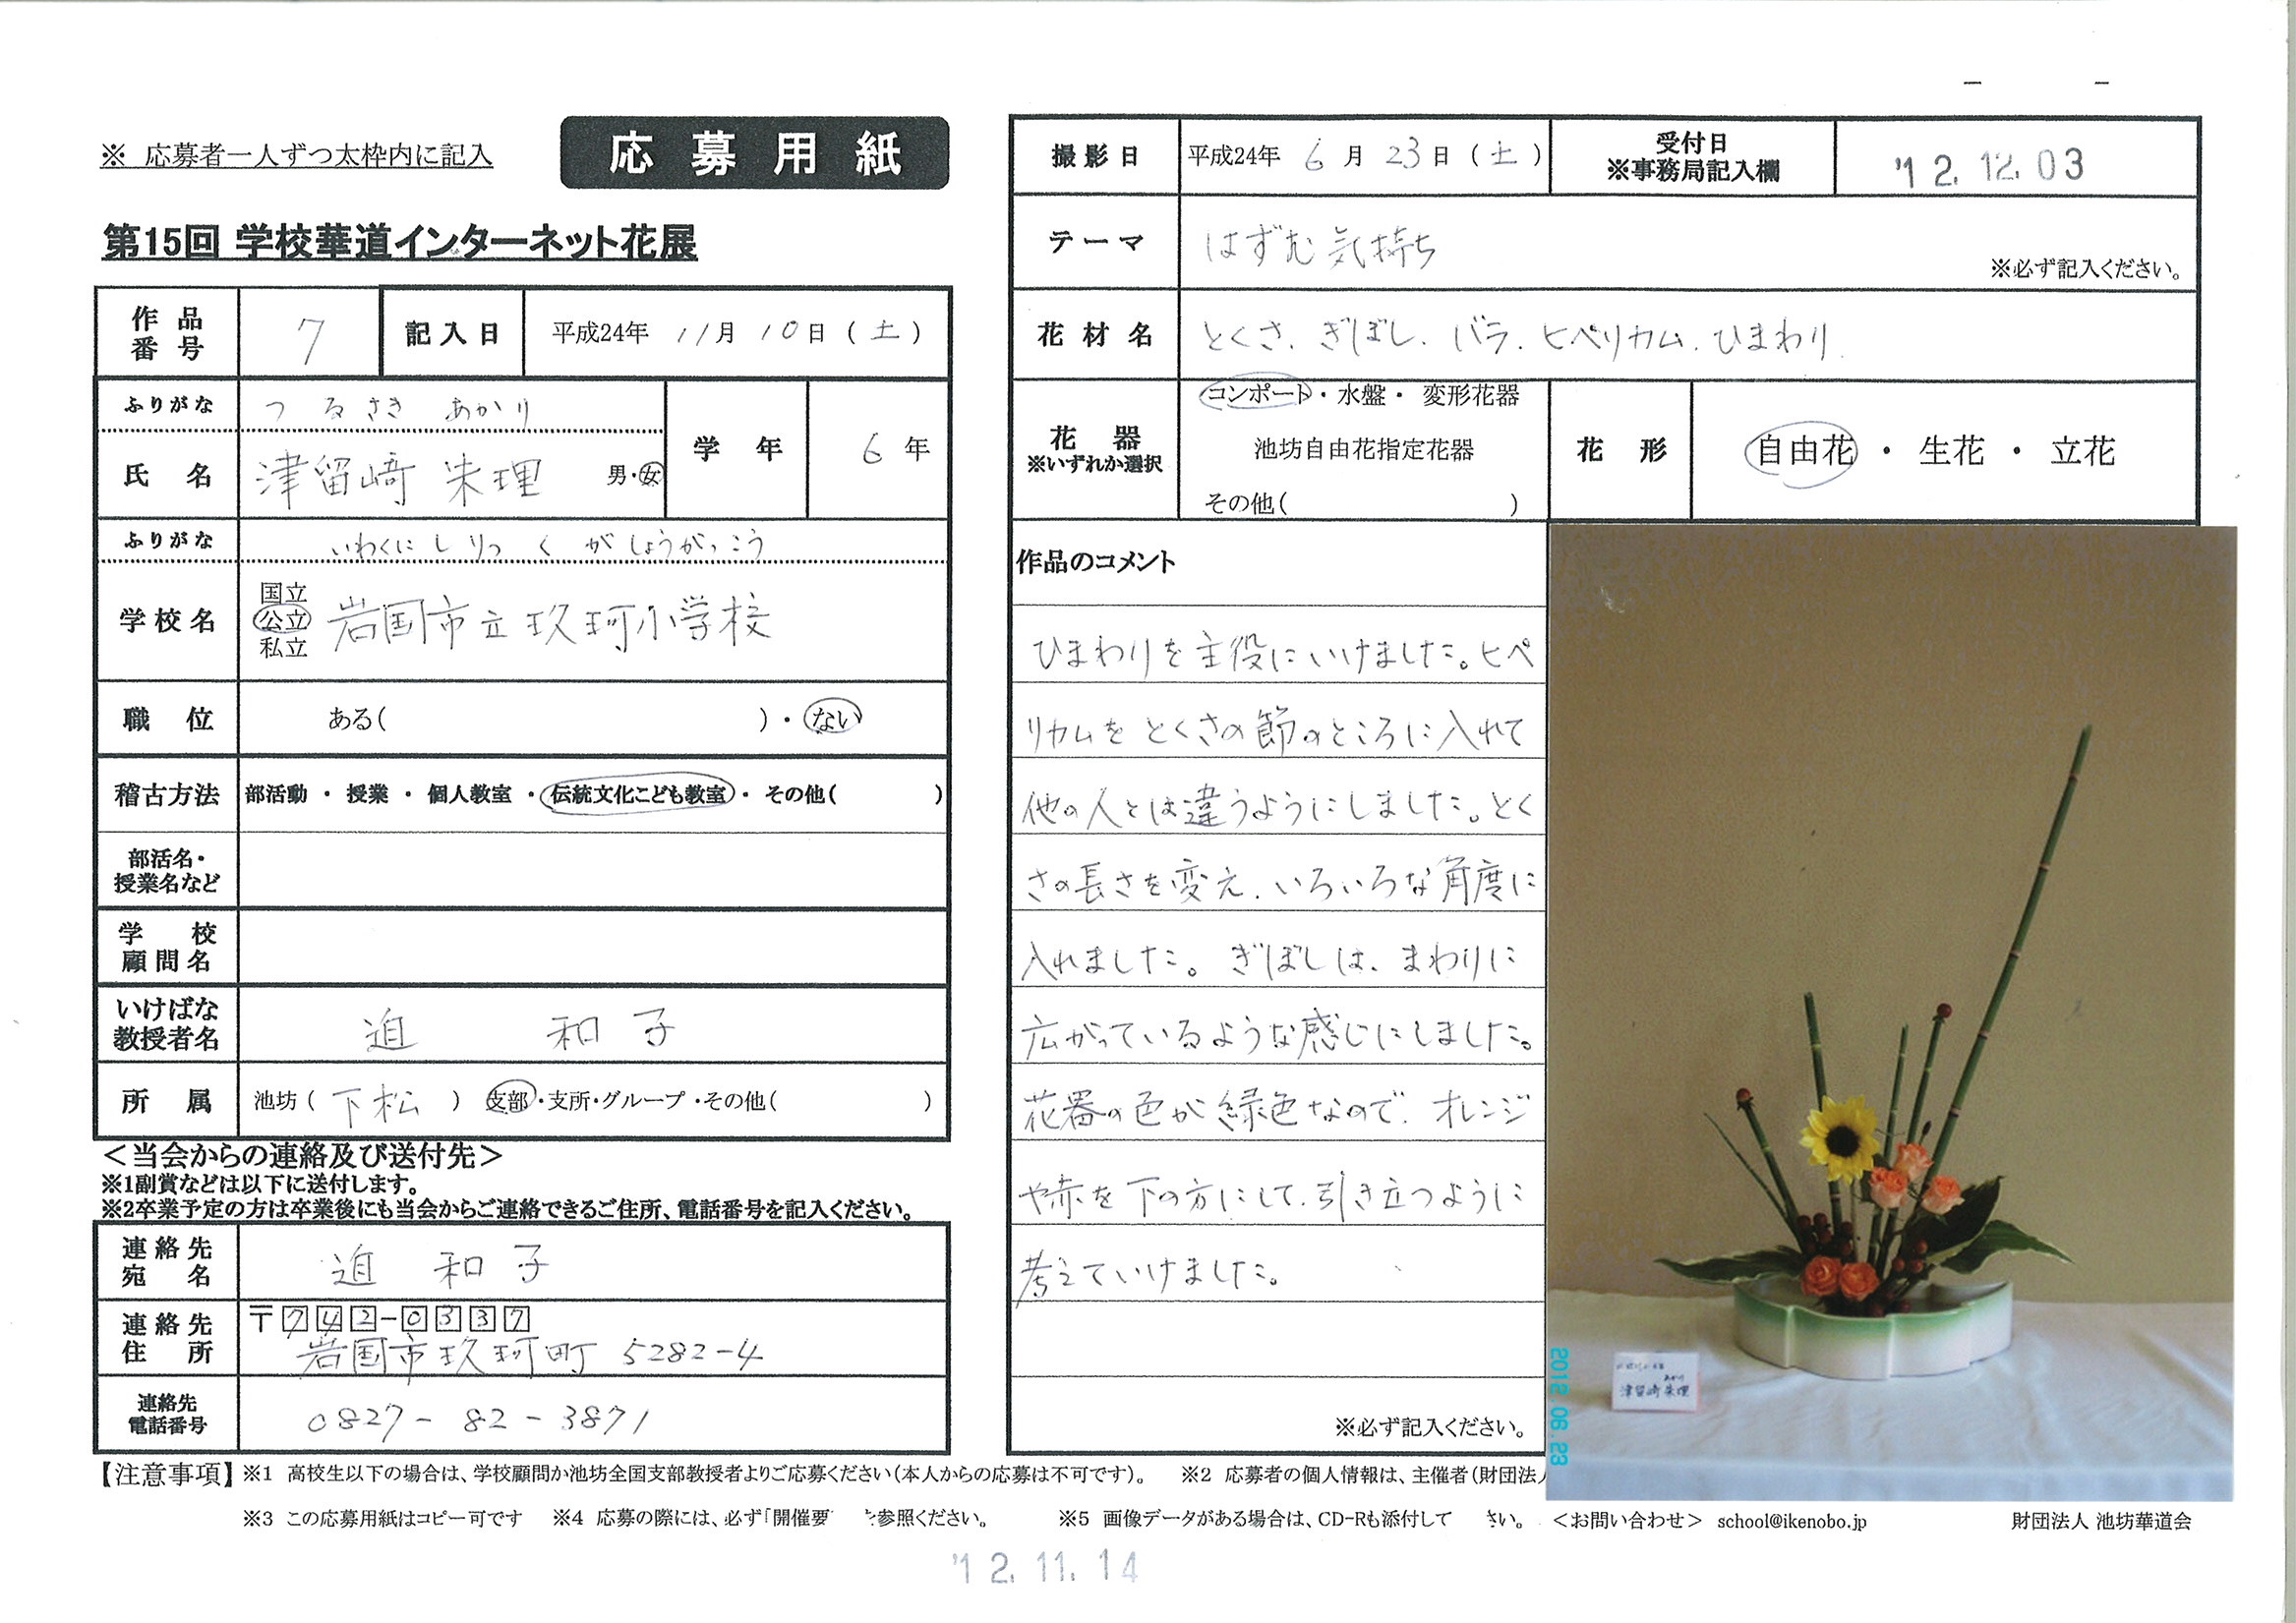 ※ 応募者一人ずつ太枠内に記入
応募用紙
第15回 学校華道インターネット花展
作品番号 7 記入日 平成24年 11月 10日 (土)
ふりがな つるさき あかり
氏名 津留﨑 朱理 男・女
学年 6年
ふりがな いわくにしりつ くがしょうがっこう
学校名 国立 公立 私立 岩国市立玖珂小学校
職位 ある( )・ない
稽古方法 部活動 ・ 授業 ・ 個人教室 ・ 伝統文化こども教室 ・ その他( )
部活名・授業名など
学校顧問名
いけばな教授者名 迫 和子
所属 池坊(下松) 支部・支所・グループ・その他( )
＜当会からの連絡及び送付先＞
※1副賞などは以下に送付します。
※2卒業予定の方は卒業後にも当会からご連絡できるご住所、電話番号を記入ください。
連絡先宛名 迫 和子
連絡先住所 〒742-0337
岩国市玖珂町 5282-4
連絡先電話番号 0827-82-3871
撮影日 平成24年 6月 23日 (土) 受付日 ※事務局記入欄 '12.12.03
テーマ はずむ気持ち ※必ず記入ください。
花材名 とくさ、ぎぼし、バラ、ヒペリカム、ひまわり
花器 ※いずれか選択 コンポート・水盤・変形花器
池坊自由花指定花器
その他( )
花形 自由花 ・ 生花 ・ 立花
作品のコメント
ひまわりを主役にいけました。ヒペ
リカムをとくさの節のところに入れて
他の人とは違うようにしました。とく
さの長さを変え、いろいろな角度に
入れました。ぎぼしは、まわりに
広がっているような感じにしました。
花器の色が緑色なので、オレンジ
や赤を下の方にして、引き立つように
考えていけました。
※必ず記入ください。
津留﨑 朱理
あかり
2012.06.23
【注意事項】※1 高校生以下の場合は、学校顧問か池坊全国支部教授者よりご応募ください(本人からの応募は不可です)。 ※2 応募者の個人情報は、主催者(財団法
※3 この応募用紙はコピー可です ※4 応募の際には、必ず「開催要 を参照ください。 ※5 画像データがある場合は、CD-Rも添付して さい。 ＜お問い合わせ＞ school@ikenobo.jp 財団法人 池坊華道会
'12.11.14